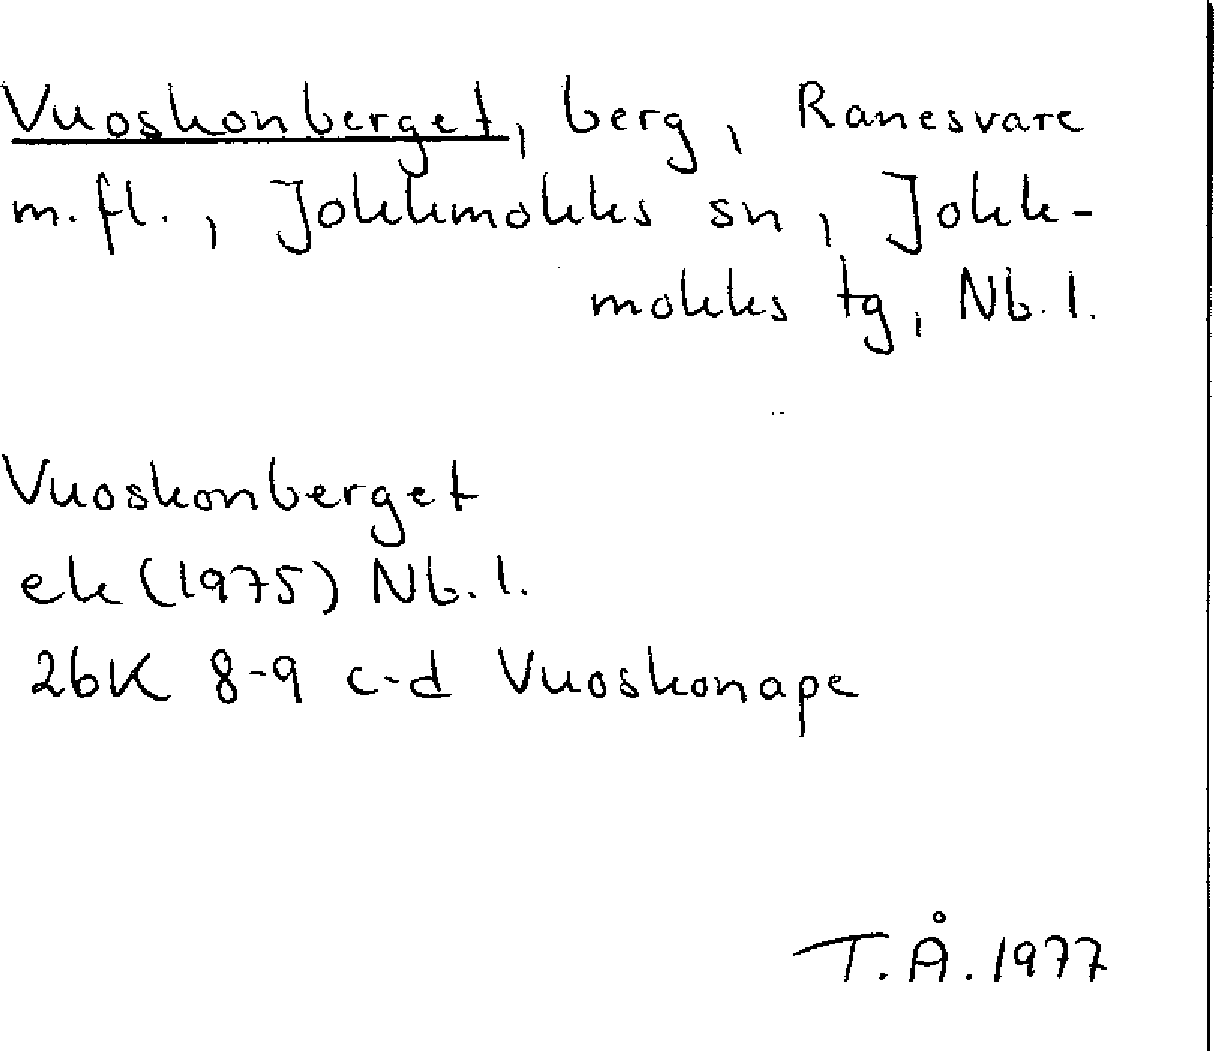 Vuoskonberget, berg, Ranesvare
m.fl., Jokkmokks sn, Jokk-
mokks tg, Nb.l.
Vuoskonberget
ek (1975) Nb.l.
26K 8-9 c-d Vuoskonape
T.Å. 1977